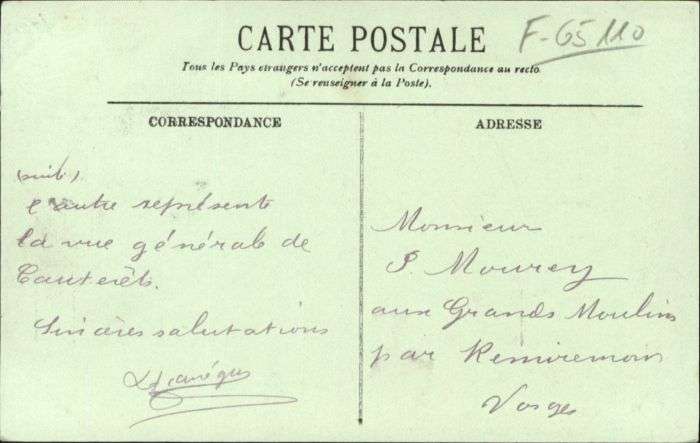 CARTE POSTALE
F-65110
Tous les Pays étrangers n'acceptent pas la Correspondance au recto.
(Se renseigner à la Poste).
CORRESPONDANCE
(suite).
l'autre représente
la vue générale de
Cauterêts.
Sincères salutations
ADRESSE
Monsieur
P. Mourey
aux Grands Moulins
par Remiremont
Vosges